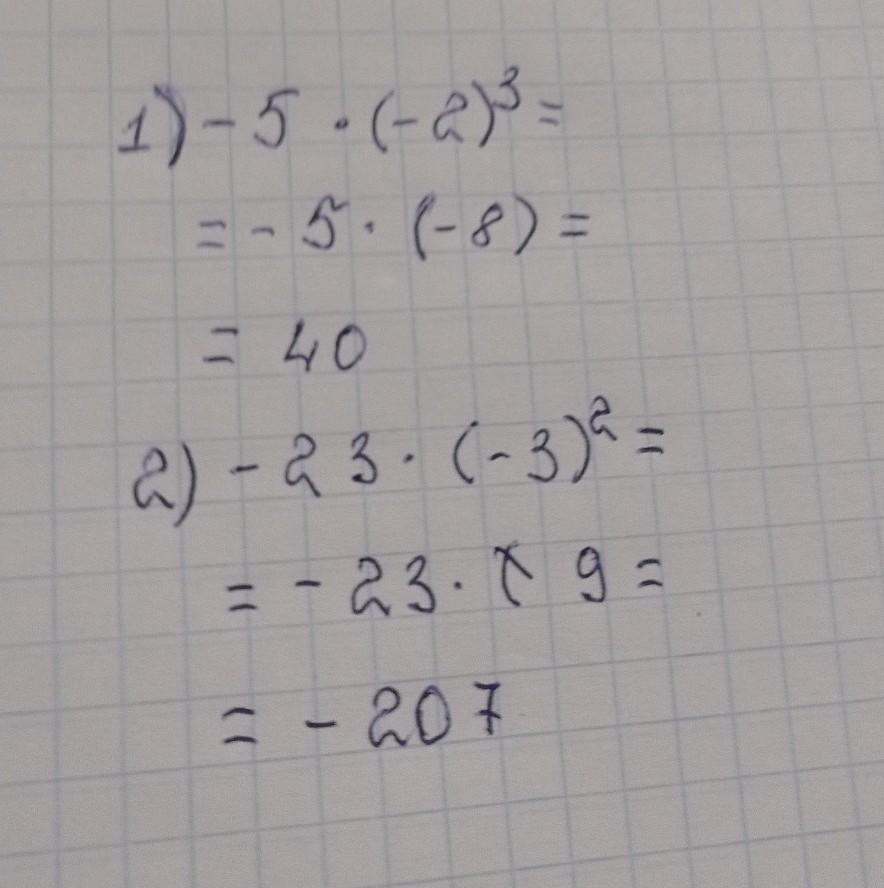 1) - 5 · (-2)³ =
= - 5 · (-8) =
= 40
2) - 23 · (-3)² =
= - 23 · 9 =
= - 207